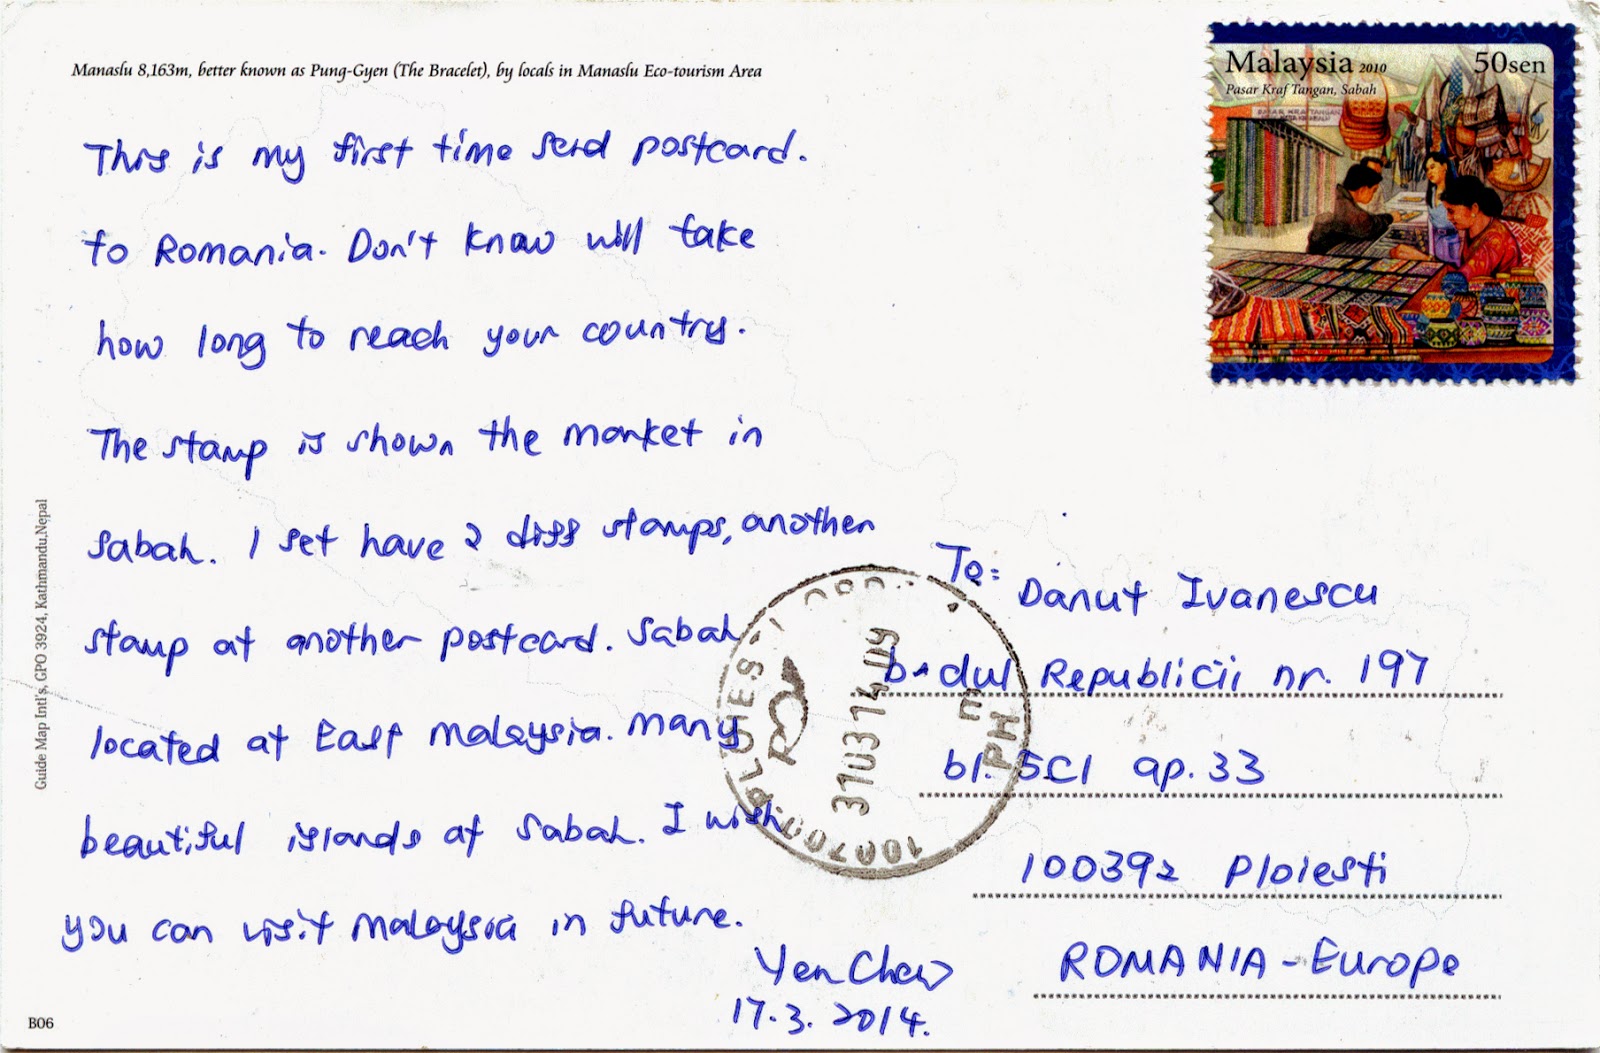 Manaslu 8,163m, better known as Pung-Gyen (The Bracelet), by locals in Manaslu Eco-tourism Area
Malaysia 2010 50sen
Pasar Kraf Tangan, Sabah
This is my first time send postcard.
to Romania. Don't know will take
how long to reach your country.
The stamp is shown the market in
Sabah. I set have 2 diff stamps, another
stamp at another postcard. Sabah
located at East Malaysia. Many
beautiful islands at Sabah. I wish
you can visit Malaysia in future.
Yen Chew
17.3.2014.
To: Danut Ivanescu
b-dul Republicii nr. 197
bl. 5C1 ap. 33
100392 Ploiesti
ROMANIA - Europe
PLOIESTI
310314
PH
Guide Map Intl's, GPO 3924, Kathmandu,Nepal
B06